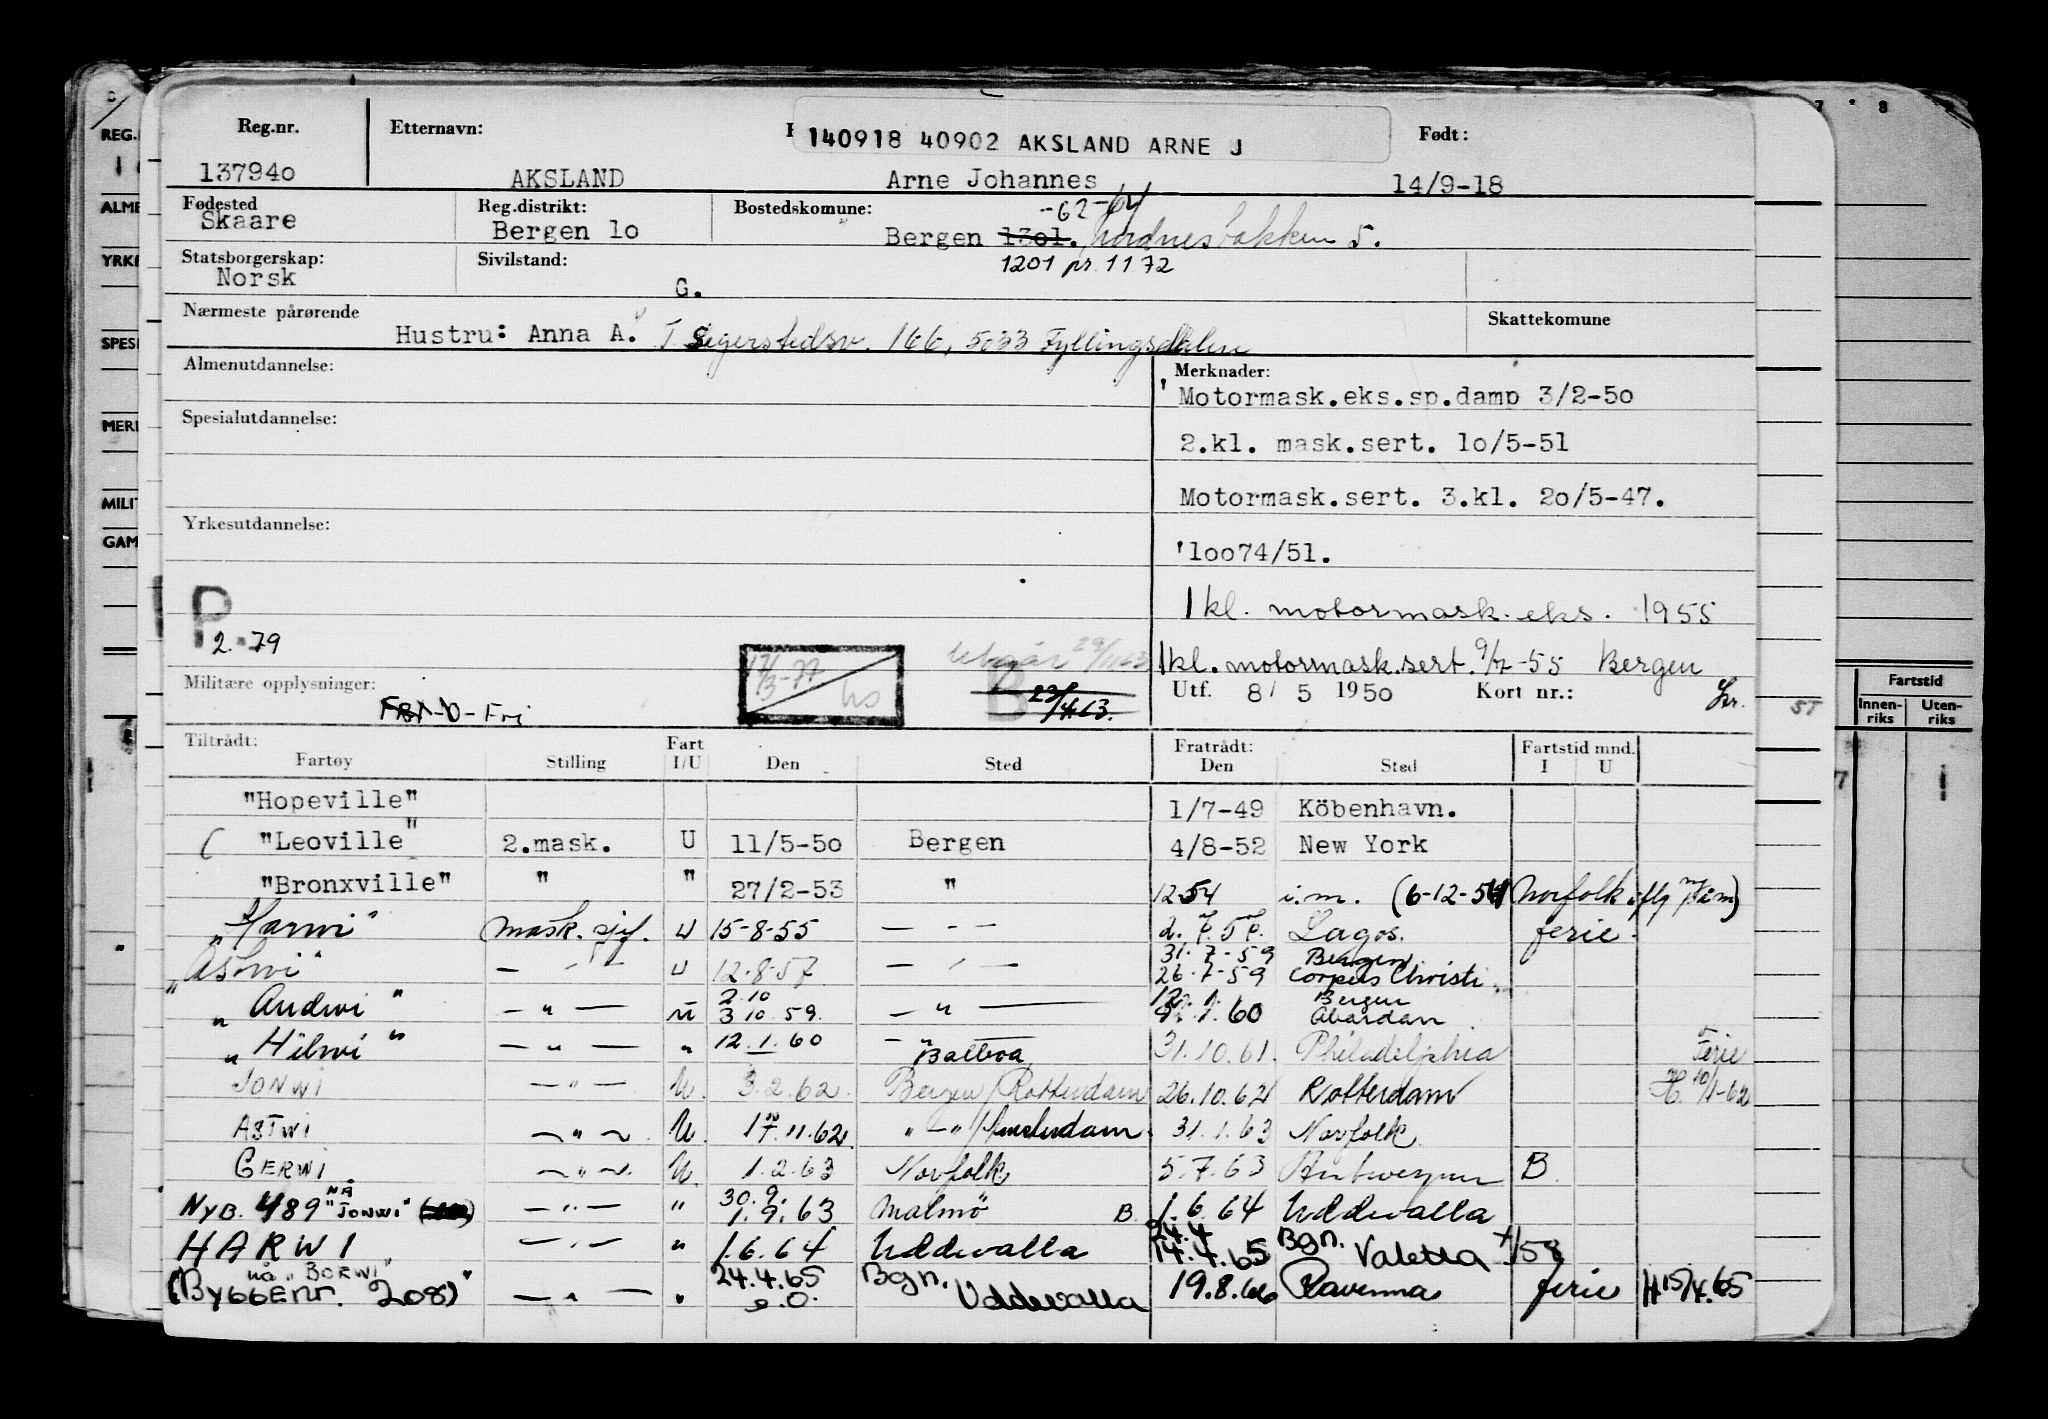 Reg.nr. Etternavn: 140918 40902 AKSLAND ARNE J Født:
137940 AKSLAND Arne Johannes 14/9-18
Fødested Reg.distrikt: Bostedskomune: -62-64
Skaare Bergen lo Bergen 1301. Nordnesbakken 5.
Statsborgerskap: Sivilstand: 1201 pr. 1172
Norsk G.
Nærmeste pårørende Skattekomune
Hustru: Anna A. T. Segerstedsv. 166, 5033 Fyllingsdalen
Almenutdannelse: Merknader:
Motormask.eks.sp.damp 3/2-50
Spesialutdannelse:
2.kl. mask.sert. lo/5-51
Motormask.sert. 3.kl. 20/5-47.
Yrkesutdannelse:
'loo74/51.
P 1 kl. motormask.eks. 1955
2.-79
1 kl. motormask.sert. 9/7-55 Bergen
Militære opplysninger: 17/3-77 B 23/4.63. Utf. 8/ 5 1950 Kort nr.:
-D-Fri
Tiltrådt: Fart Fratrådt: Fartstid mnd.
Fartøy Stilling I/U Den Sted Den Sted I U
"Hopeville" 1/7-49 Köbenhavn.
"Leoville" 2.mask. U 11/5-50 Bergen 4/8-52 New York
"Bronxville" " " 27/2-53 " 12-54 i.m. (6-12-54 Norfolk
"Harwi" Mask.sjef. U 15-8-55 — - — 2.7.57. Lagos. ferie.
31.7-59 Bergen
"Astwi" — " — U 12-8-57 — " — 26.7-59 Corpus Christi
2.10 12.1. Bergen
"Andwi" — " — U 3 10 59. — " — 1.60 Abardan
"Hilwi" — " — " 12.1.60 — " — Balboa 31.10.61. Philadelphia Ferie
JONWI — " — U. 3.2.62. Bergen/Rotterdam 26.10.62 Rotterdam 10/1-62
ASTWI — " — U. 17.11.62 " — " /Amsterdam 31.1.63 Norfolk.
GERWI — " — U. 1.2.63 Norfolk 5.7.63 Antwerpen B.
NÅ 30.9.
NYB. 489 "JONWI" — " — " 1.9.63 Malmö B. 1.6.64 Uddevalla
24.4 Bgn.
HARWI — " — " 1.6.64 Uddevalla 14.4.65 Valetta
nå "BORWI" 24.4.65 Bgn.
(Byggenr. 208) — " — " e.o. Uddevalla 19.8.66 Ravenna ferie H.15/4.65
REG.
ALME
YRKE
SPESI
MERI
MILIT
GAM
7 8
Fartstid
Innen- Uten-
riks riks